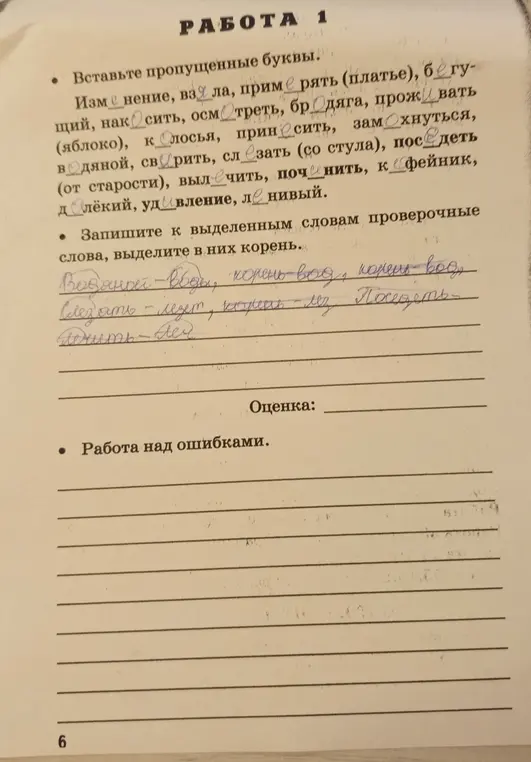 РАБОТА 1
• Вставьте пропущенные буквы.
Изменение, взяла, примерять (платье), бегу-
щий, накосить, осмотреть, бродяга, проживать
(яблоко), колосья, приносить, замахнуться,
водяной, сварить, слезать (со стула), поседеть
(от старости), вылечить, починить, кофейник,
далёкий, удивление, ленивый.
• Запишите к выделенным словам проверочные
слова, выделите в них корень.
Водяной - воды, корень-вод, корень-вод,
Слезать - лезт, корень - лез Поседеть-
Оценка:
• Работа над ошибками.
6